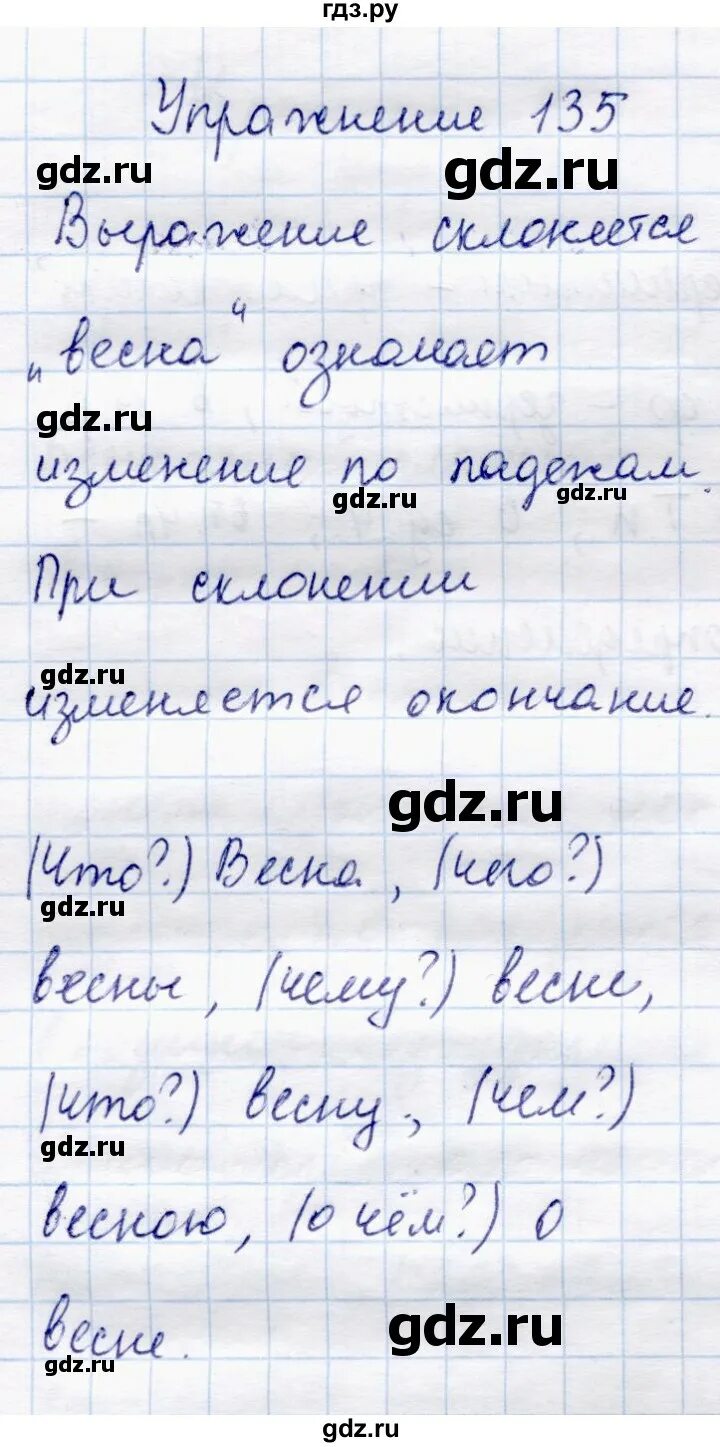 гдз.ру
Упражнение 135
gdz.ru
gdz.ru
Выражение склоняется
„весна“ означает
gdz.ru
изменение по падежам.
gdz.ru
gdz.ru
При склонении
gdz.ru
изменяется окончание.
gdz.ru
(Что?) Весна, (чего?)
gdz.ru
весны, (чему?) весне,
(что?) весну, (чем?)
gdz.ru
весною, (о чём?) о
весне.
gdz.ru
gdz.ru
gdz.ru